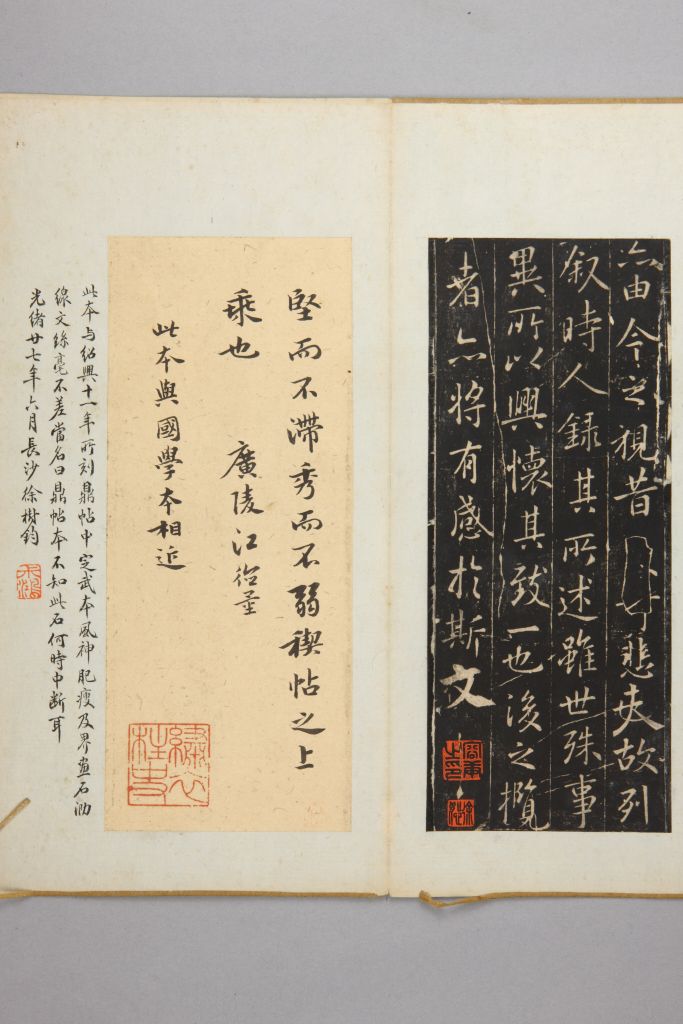 亦由今之視昔悲夫故列
叙時人録其所述雖世殊事
異所以興懷其致一也後之攬
者亦將有感於斯文
堅而不滯秀而不弱稧帖之上
乘也 廣陵江德量
此本與國學本相近
繡衣
柱史
此本与紹興十一年所刻鼎帖中定武本風神肥瘦及界畫石泐
線文絲毫不差當名曰鼎帖本不知此石何時中斷耳
光緒廿七年六月長沙徐樹鈞